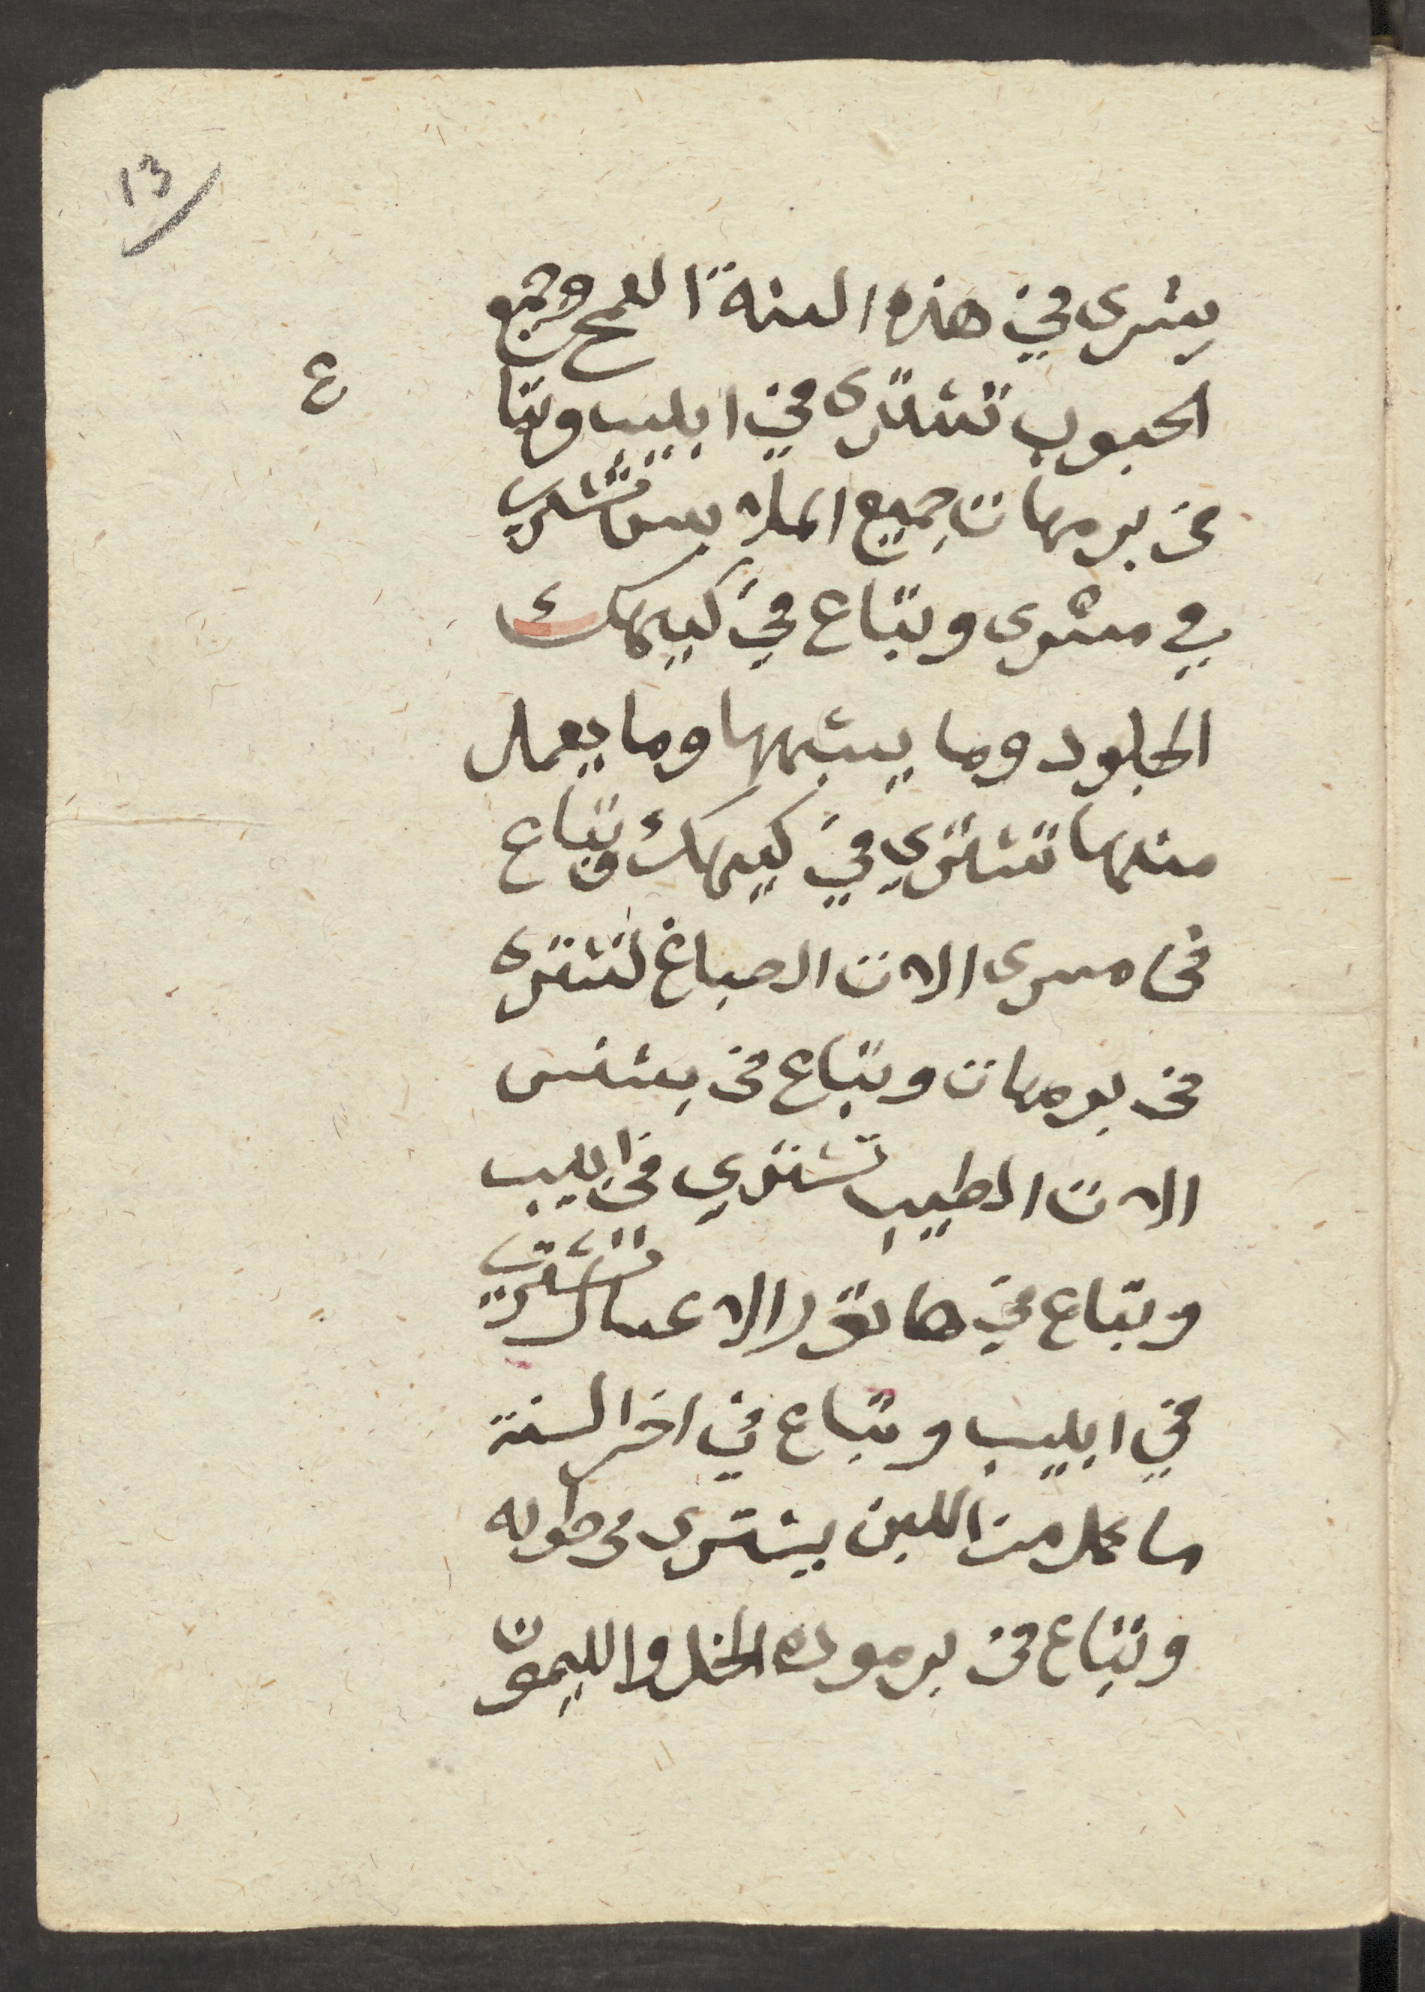 13
يشرى في هذه السنة القمح وجميع
الحبوب تشترى في ابيب وتبا
ع
في برمهات جميع الملابس تشترى
في مسرى وتباع في كيهك
الجلود وما يشبهها وما يعمل
منها تشتري في كيهك وتباع
في مسرى الات الصباغ تشترى
في برمهات وتباع في بشنس
الات الطيب تشتري في ابيب
وتباع في هاتور الاعسال تشتري
في ابيب وتباع في اخر السنة
ما عمل من اللبن يشترى في طوبه
وتباع في برموده الخل والليمون